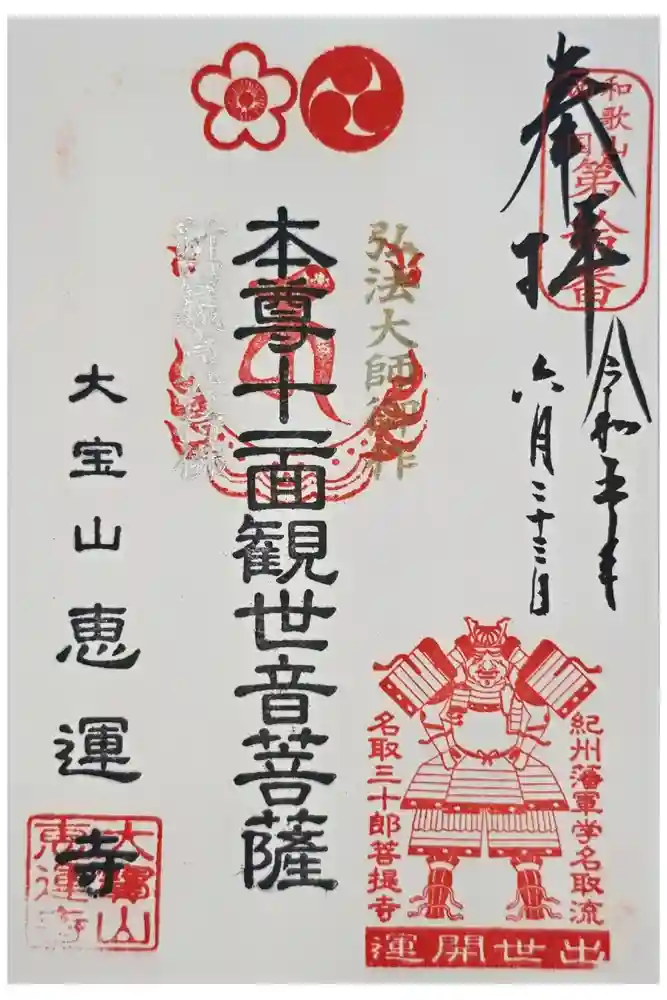 奉拝
和歌山
西国
第拾番
令和五年
六月二十三日
弘法大師御作
本尊十一面観世音菩薩
大宝山恵運寺
大寶山
恵運寺
紀州藩軍学名取流
名取三十郎菩提寺
出世開運